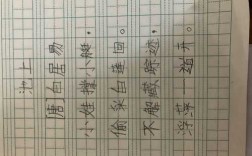 池上
唐白居易
小姓撑小艇，
偷采白莲回。
不解藏踪迹，
浮萍一道开。